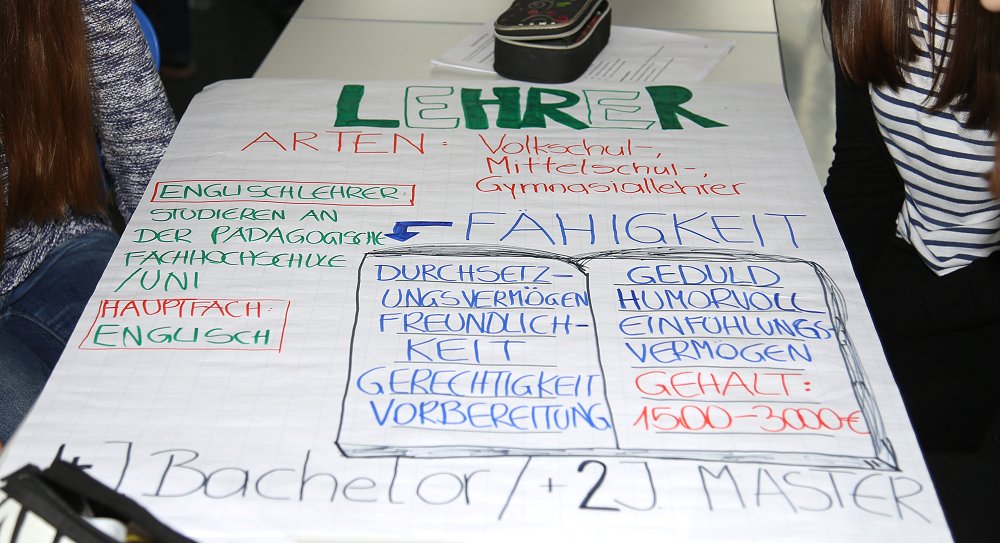 LEHRER
ARTEN: Volkschul-,
Mittelschul-,
Gymnasiallehrer
ENGLISCHLEHRER
STUDIEREN AN
DER PÄDAGOGISCHE
FACHHOCHSCHULE
/UNI
HAUPTFACH:
ENGLISCH
FÄHIGKEIT
DURCHSETZ-
UNGSVERMÖGEN
FREUNDLICH-
KEIT
GERECHTIGKEIT
VORBEREITUNG
GEDULD
HUMORVOLL
EINFÜHLUNGS-
VERMÖGEN
GEHALT:
1500-3000€
J Bachelor/+2J. MASTER